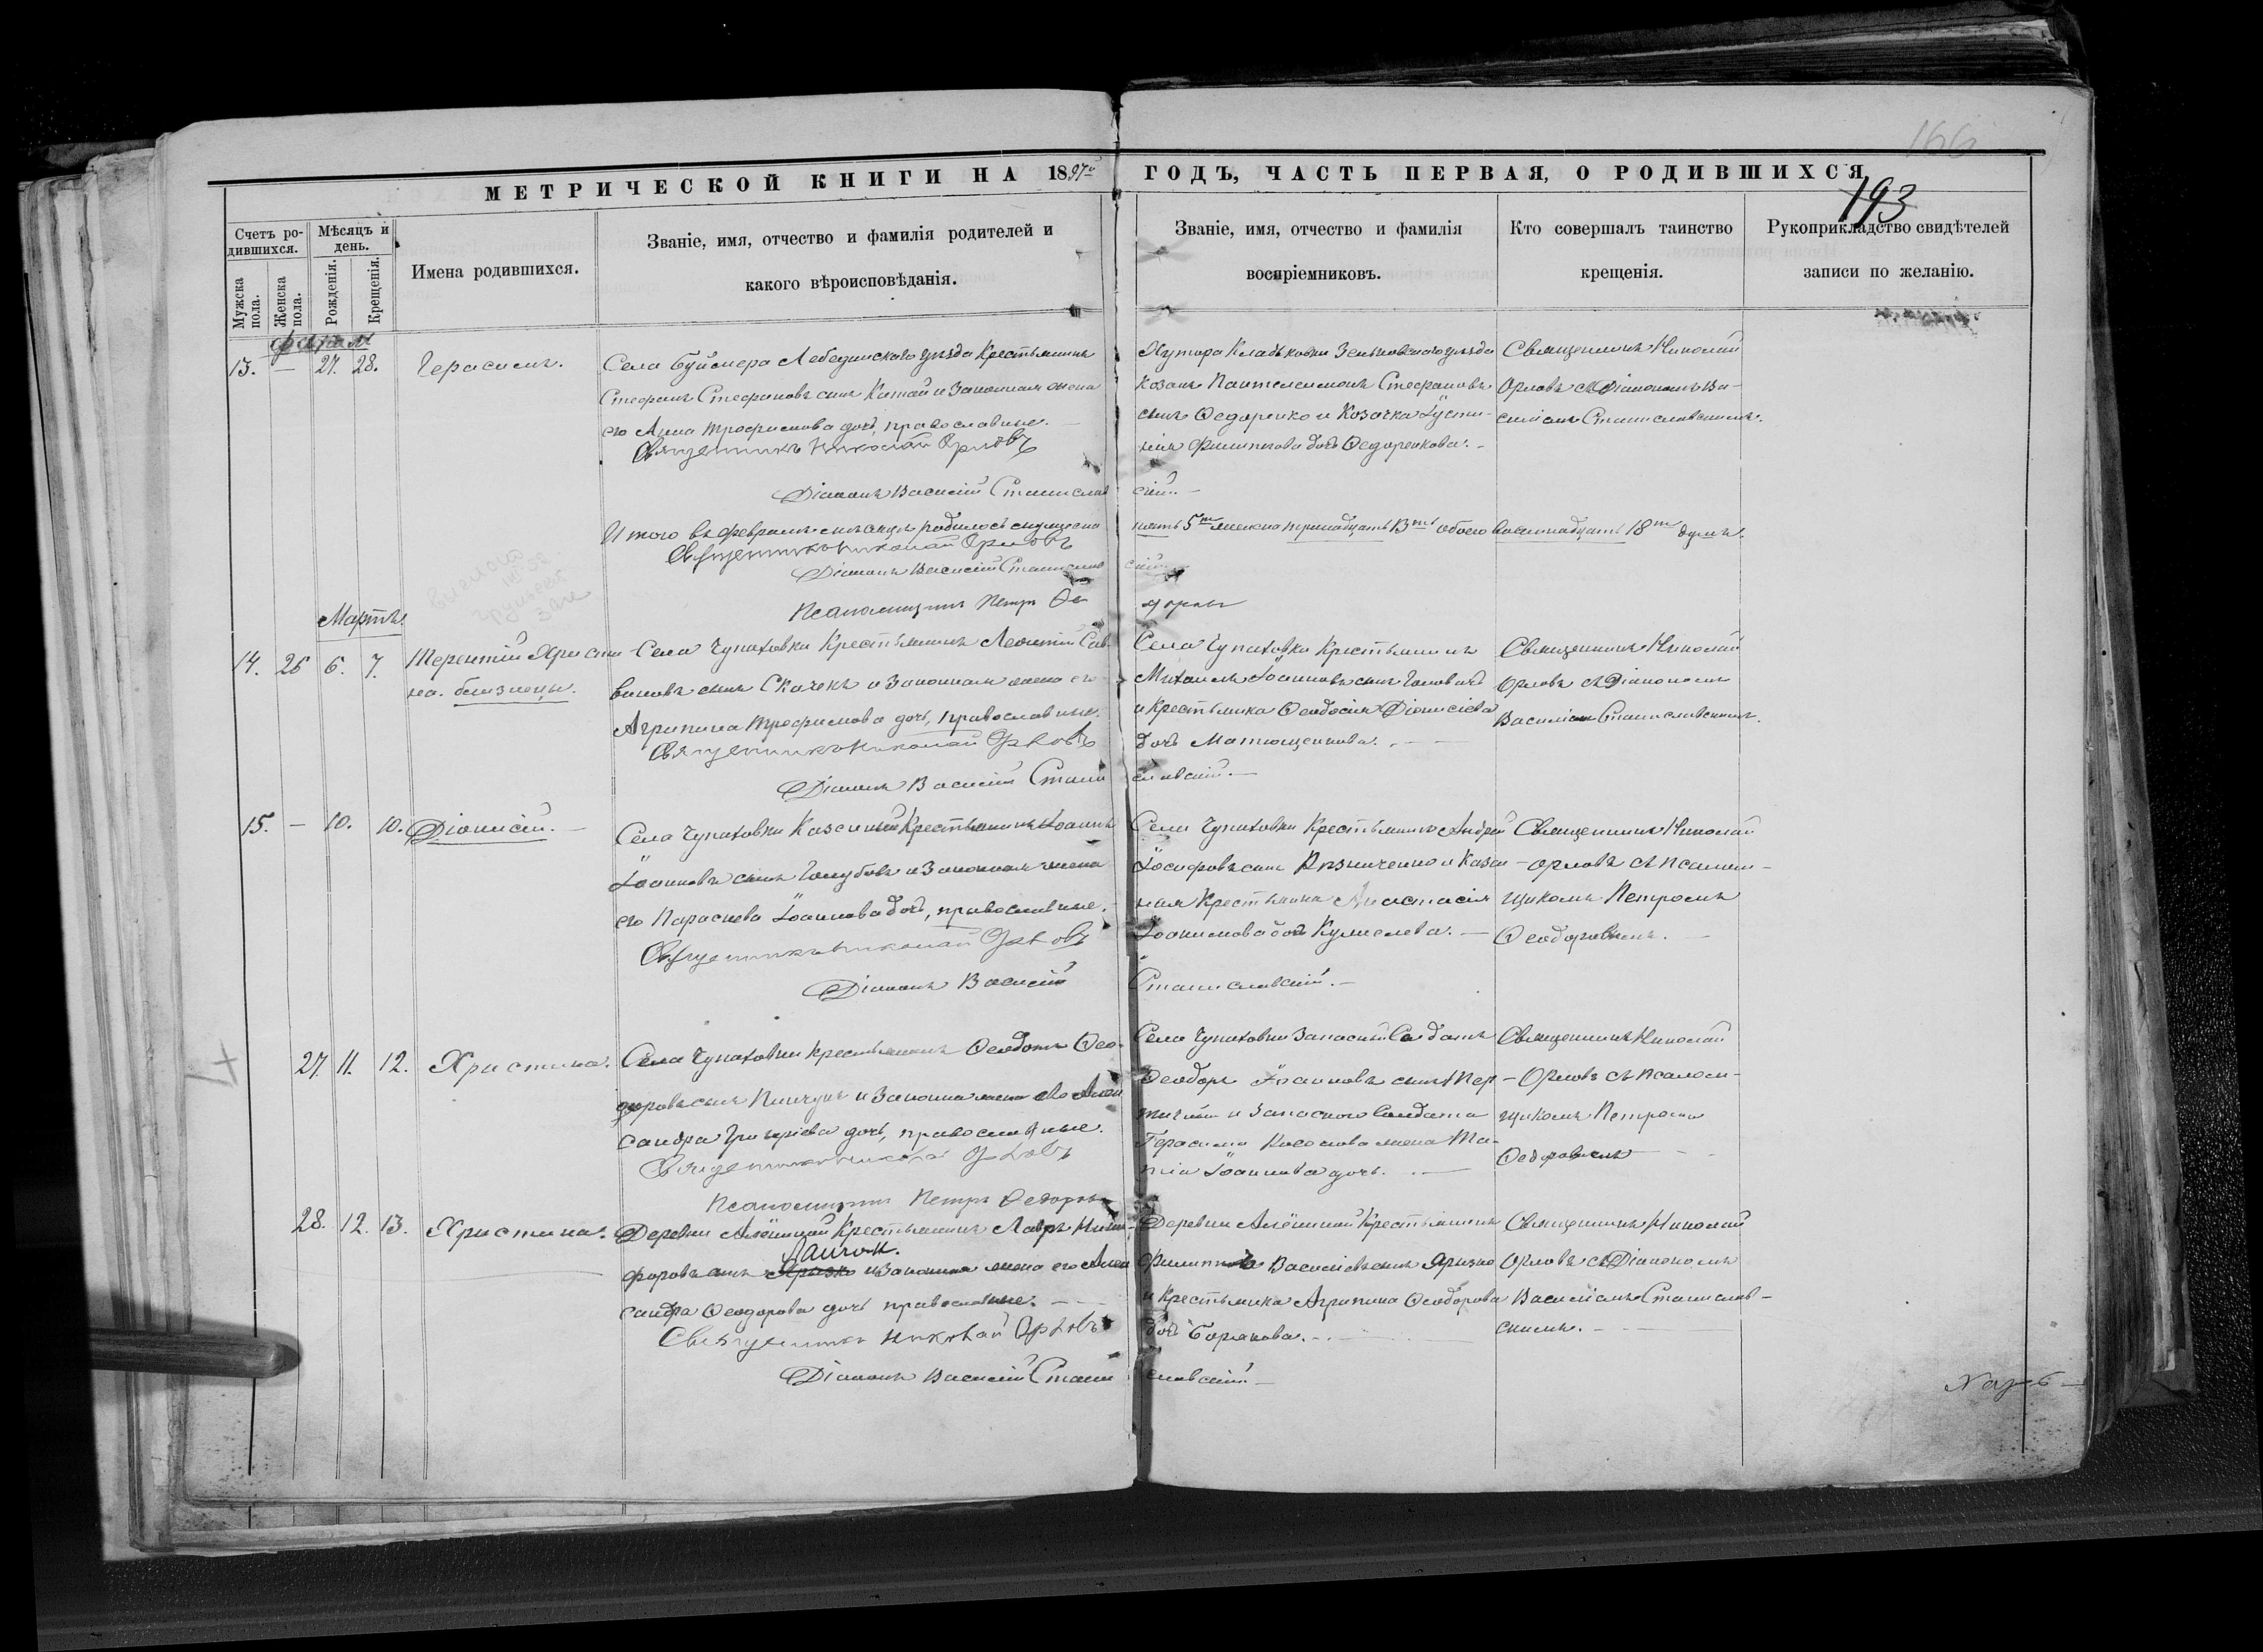 166
193
МЕТРИЧЕСКОЙ КНИГИ НА 1897й ГОДЪ, ЧАСТЬ ПЕРВАЯ, О РОДИВШИХСЯ
Счетъ родившихся.
Мужска пола.
Женска пола.
Мѣсяцъ и день.
Рожденія.
Крещенія.
Имена родившихся.
Званіе, имя, отчество и фамилія родителей и
какого вѣроисповѣданія.
Званіе, имя, отчество и фамилія
воспріемниковъ.
Кто совершалъ таинство
крещенія.
Рукоприкладство свидѣтелей
записи по желанію.
13. — 27. 28. Герасимъ.
Села Буймера Лебединскаго уѣзда Крестьянинъ
Стефанъ Стефановъ сынъ Китай и Законная жена
его Анна Трофимова дочь, православные.
Священникъ Николай Орловъ
Діаконъ Василій Станиславскій.
Хутора Кладьковки Зеньковскаго уѣзда
козакъ Пантелеимонъ Стефановъ
сынъ Ѳедоренко и Козачка Іусти-
нія Филиппова дочь Ѳедоренкова.
Священникъ Николай
Орловъ съ Діакономъ Ва-
силіемъ Станиславскимъ.
Итого въ февралѣ мѣсяцѣ родилось мужеска пять 5ть женска тринадцать 13ть обоего восемнадцать 18ть душъ.
Священникъ Николай Орловъ
Діаконъ Василій Станиславскій
Псаломщикъ Петръ Ѳедоровъ
Мартъ.
14. 26 6. 7. Терентій Христи
на. близнецы.
Села Чупаховки Крестьянинъ Леонтій Сав-
виновъ сынъ Скачекъ и Законная жена его
Агрипина Трофимова дочь, православные.
Священникъ Николай Орловъ
Діаконъ Василій Станиславскій.
Села Чупаховки Крестьянинъ
Михаилъ Іоанновъ сынъ Головачъ
и Крестьянка Ѳеодосія Діонисіева
дочь Матющенкова.
Священникъ Николай
Орловъ съ Діакономъ
Василіемъ Станиславскимъ.
15. — 10. 10. Діонисій.
Села Чупаховки Казенный Крестьянинъ Іоаннъ
Іоанновъ сынъ Голубовъ и Законная жена
его Параскева Іоаннова дочь, православные.
Священникъ Николай Орловъ
Діаконъ Василій Станиславскій.
Села Чупаховки Крестьянинъ Андрей
Іосифовъ сынъ Рѣзниченко и Казен-
ная Крестьянка Анастасія
Іоакимова дочь
Священникъ Николай
Орловъ съ псалом-
щикомъ Петромъ
Ѳеодоровымъ.
27. 11. 12. Христина.
Села Чупаховки Крестьянинъ Ѳеодотъ Ѳео-
доровъ сынъ Пинчукъ и Законна жена его Алек
сандра Григоріева дочь, православные.
Священникъ Николай Орловъ
Псаломщикъ Петръ Ѳедоровъ
Села Чупаховки Запасный Солдатъ
Ѳеодоръ Іоанновъ сынъ
и Запаснаго Солдата
Герасима жена Ма-
рія Іоаннова дочь.
Священникъ Николай
Орловъ съ псалом-
щикомъ Петромъ
Ѳедоровымъ
28. 12. 13. Христина.
Деревни Алёшиной Крестьянинъ Лавръ Ники-
форовъ сынъ и Законна жена его Алек
сандра Ѳеодорова дочь православные.
Священникъ Николай Орловъ
Діаконъ Василій Станиславскій.
Деревни Алёшиной Крестьянинъ
Филиппъ Василіевъ сынъ Ярызко
и Крестьянка Агрипина Ѳеодорова
дочь
Священникъ Николай
Орловъ съ Діакономъ
Василіемъ Станислав-
скимъ.